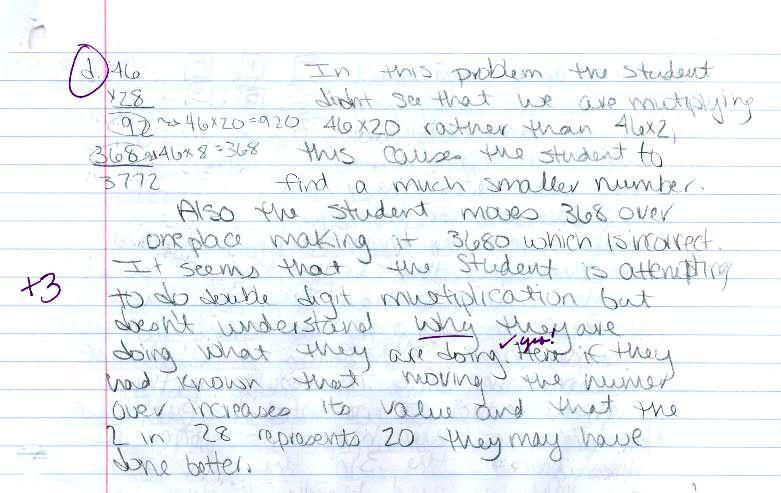 d. 46 In this problem the student
x28 didnt see that we are mutplying
92 → 46x20=920 46x20 rather than 46x2,
368 → 46x8=368 this causes the student to
3772 find a much smaller number.
Also the student moves 368 over
one place making it 3680 which is incorrect.
It seems that the student is attempting
+3
to do double digit multiplication but
doesn't understand why they are
doing what they are doing. ✓ yes! Here if they
had known that moving the numer
over increases its value and that the
2 in 28 represents 20 they may have
done better.